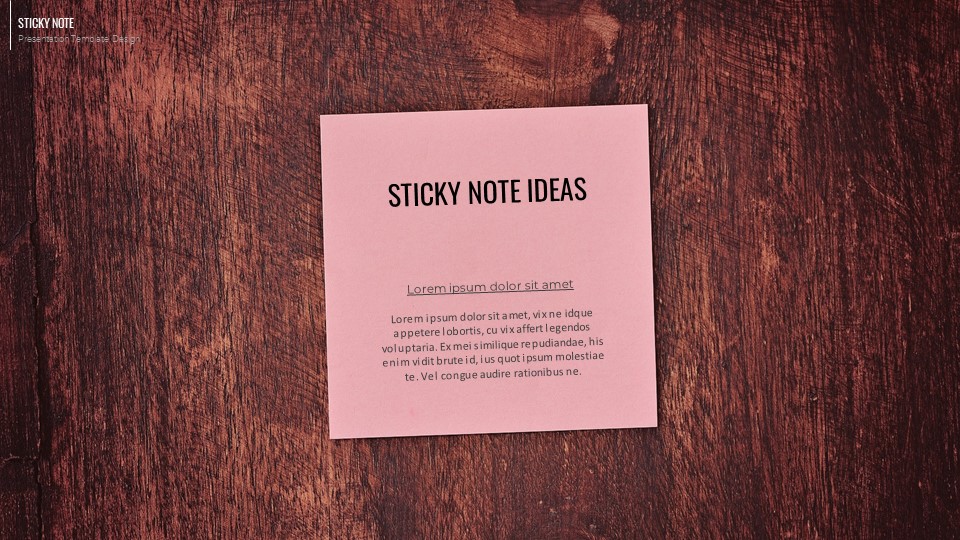 STICKY NOTE
Presentation Template Design
STICKY NOTE IDEAS
Lorem ipsum dolor sit amet
Lorem ipsum dolor sit amet, vix ne idque
appetere lobortis, cu vix affert legendos
voluptaria. Ex mei similique repudiandae, his
enim vidit brute id, ius quot ipsum molestiae
te. Vel congue audire rationibus ne.